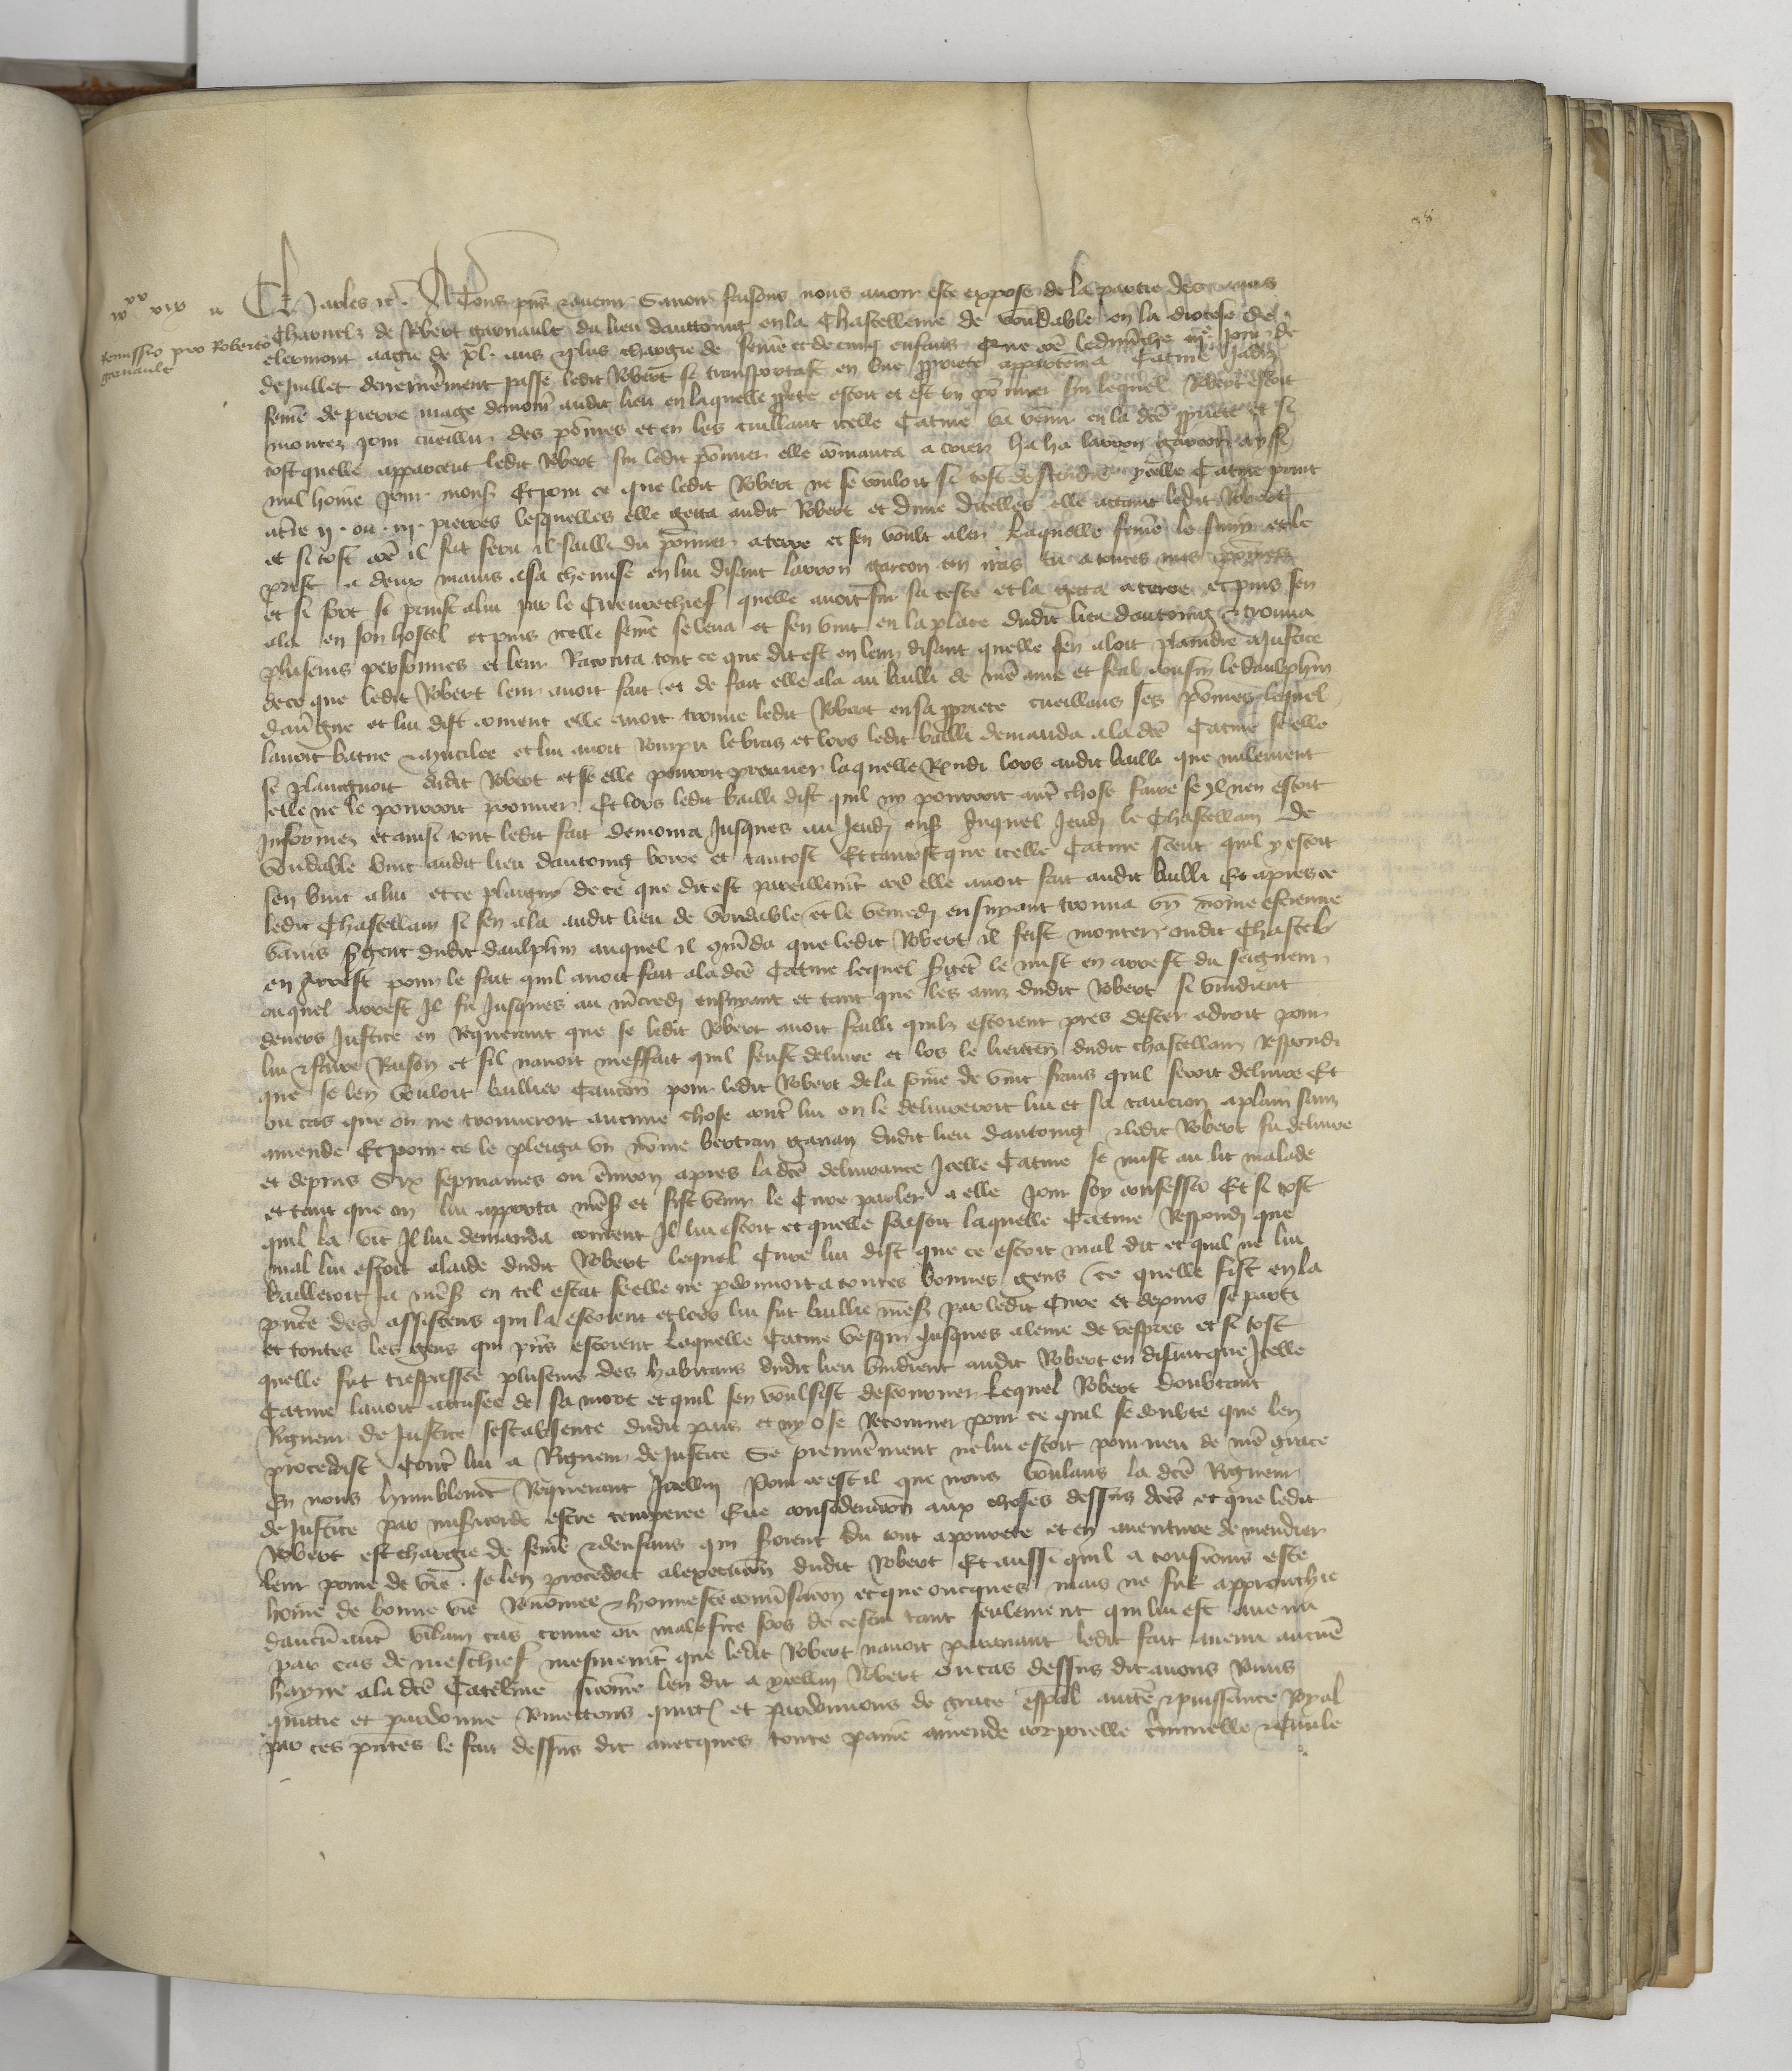 38
iiii xx xix
Charles etc. A Tous pns & avenir Savoir faisons nous avoir este expose de la partie des amis
Remissio pro Roberto garnault
Charnelz de Robert garnault du lieu dauttoing en la Chastellenie de voudable en la diocese de
clermont aagie de xl. ans & plus chargie de feme et de cinq enfans Que coe le dimenche jour de
de Juillet derrenierement passe ledit Robert se transportast en une propriete appartenant a Catme Jadiz
feme de pierre mage demour audit lieu en laquelle pprete estoit et est un pomier sur lequel Robert estoit
montez pour cueillir des pomes et en les cuillant icelle Catme va venir en la dce pprete et si
tost quelle apparceut ledit Robert sur ledit pomier elle comanca a crier ha ha larron garcon
nul home pour mons Et pour ce que ledit Robert ne se vouloit si tost descendre ycelle Catme print
a tre ij. ou .iij. pierres lesquelles elle getta audit Robert et dune dicelles elle attaint ledit Robert
et si tost coe il fut feru il sailli du pomier a terre et sen voult aler Laquelle feme le suivi et le
prist a deux mains a sa chemise en lui disant larron garcon ten iras tu a toutes mes pomes
et si fort se prinst a lui par le Cueuvrechief quelle avoit sur sa teste et la getta a terre et puis sen
ala en son hostel et puis icelle feme se leva et sen vint en la place dudit lieu dautoing & trouva
pluseurs personnes et leur Raconta tout ce que dit est en leur disant quelle sen aloit plaindre a Justice
de ce que ledit Robert leur avoit fait et de fait elle ala au bailli de nre ame et feal cousin le daulphin
dauvgne et lui dist coment elle avoit trouve ledit Robert en sa pprete cueillans ses pomes lequel
lavoit batue & mutilee et lui avoit Rompu le bras et lors ledit bailli demanda a la dce Catme se elle
se plaingnoit dudit Robert et se elle pourroit prouver laquelle Rendi lors audit bailli que nullement
elle ne le pourroit prouver. Et lors ledit bailli dist quil ny pourroit autre chose faire se yl nen estoit
Informez et ainsi tout ledit fait demoura Jusques au Jeudi ens Auquel Jeudi le Chastellain de
voudable vint audit lieu dautoing boire et tantost Et tantost que icelle Catme sceut quil y estoit
sen vint a lui et ce plaigni de ce que dit est pareillemt coe elle avoit fait audit bailli Et apres ce
ledit Chastellain si sen ala audit lieu de voudable et le venredi ensuyant trouva un nome estienne
sergent dudit daulphin auquel il comanda que ledit Robert il feist monter oudit Chastel
en Arrest pour le fait quil avoit fait a la dce Catme lequel sergent le mist en arrest du seigneur
ouquel arrest Il fu Jusques au mercredi ensuyant et tant que les amis dudit Robert si vindrent
devers Justice en Requerant que se ledit Robert avoit failli quilz estoient pres dester a droit pour
lui & faire Raison et sil navoit meffait quil feust delivre et lors le lieuten dudit chastellain Respondi
que se len vouloit baillier Caucion pour ledit Robert de la some de vint frans quil seroit delivre Et
ou cas que on ne trouveroit aucune chose contre lui on le delivreroit lui et sa caucion a plain sanz
amende Et pour ce le pleiga un nome bertran dudit lieu dautoing & ledit Robert fu delivre
et depuis Six sepmaines ou environ apres la dce delivrance Icelle Catme se mist au lit malade
et tant que on lui apporta et fist venir le Cure parler a elle pour soy confesser Et si tost
quil la vit Il lui demanda coment Il lui estoit et quelle faisoit laquelle Catme Respondi que
mal lui estoit a laide dudit Robert lequel Cure lui dist que ce estoit mal dit et quil ne lui
bailleroit ja en tel estat se elle ne pdonnoit a toutes bonnes gens Ce quelle fist en la
pnce des assistens qui la estoient et lors lui fut baillie par ledit Cure et depuis se parti
et toutes les gens qui pns estoient Laquelle Catme vesqui Jusques a leure de vespres et si tost
quelle fut trespassee pluseurs des habitans dudit lieu vindrent audit Robert en disant que Icelle
Catme lavoit accuse de sa mort et quil sen voulsist destourner Lequel Robert doubtant
Rigueur de Justice sest absente dudit pais et ny ose Retourner pour ce quil se doubte que len
procedist Contre lui a Rigueur de Justice Se premierement ne lui estoit pourveu de nre grace
En nous humblemt Requerant Icelle Pour ce est il que nous voulans la dce Rigueur
de Justice par misericorde estre temperee Eue consideracion aux choses dessus dces et que ledit
Robert est chargie de feme & denfans qui seroient du tout a pourete et en aventure de mendier
leur pouvre de vie. se len procedoit a lexecucion dudit Robert Et aussi quil a tousiours este
home de bonne vie Renomee & honneste conversacion et que oncques mais ne fut approuchie
daucun autre villain cas crime ou malefice fors de cestui tant seulement qui lui est avenu
par cas de meschief mesmement que ledit Robert navoit paravant ledit fait avenu aucune
hayne a la dce Catelme Sicome len dit a ycellui Robert ou cas dessus dit avons Remis
quittie et pardonne Remettons quitt et pardonnons de grace espal auctte & puissance Royal
par ces pntes le fait dessus dit avecques toute paine amende corporelle criminelle & Civile